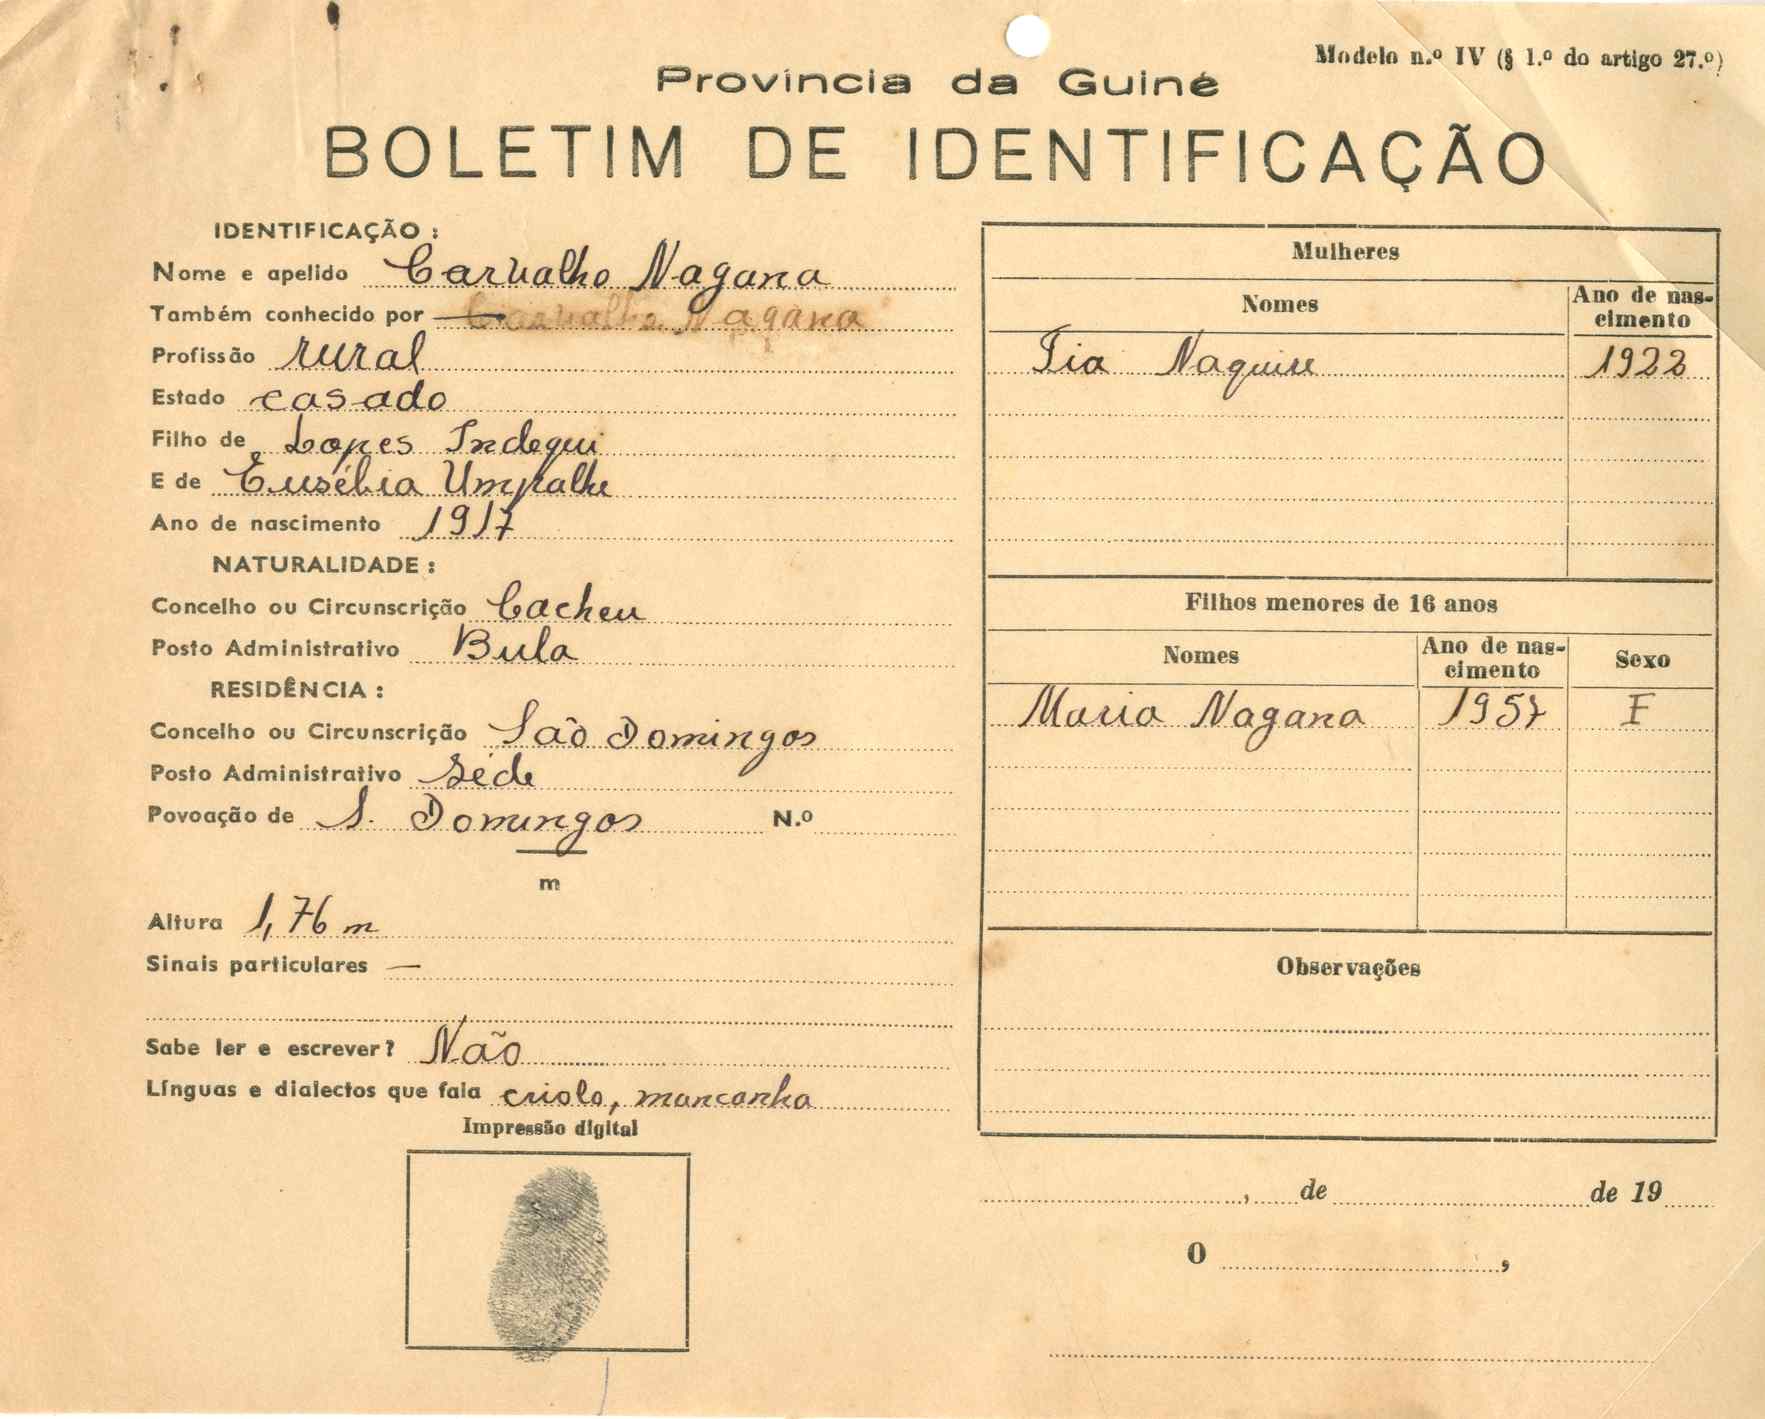 Modelo n.º IV (§ 1.º do artigo 27.º)
Província da Guiné
BOLETIM DE IDENTIFICAÇÃO
IDENTIFICAÇÃO :
Nome e apelido Carvalho Nagana
Também conhecido por — Carvalho Nagana
Profissão rural
Estado casado
Filho de Lopes Indequi
E de Eusébia Umpalhe
Ano de nascimento 1917
NATURALIDADE :
Concelho ou Circunscrição Cacheu
Posto Administrativo Bula
RESIDÊNCIA :
Concelho ou Circunscrição São Domingos
Posto Administrativo Séde
Povoação de S. Domingos N.º
m
Altura 1,76 m
Sinais particulares —
Sabe ler e escrever? Não
Línguas e dialectos que fala criolo, mancanha
Impressão digital
Mulheres
Nomes Ano de nas-
cimento
Naquire 1922
Filhos menores de 16 anos
Nomes Ano de nas-
cimento Sexo
Maria Nagana 1957 F
Observações
, de de 19
O ,